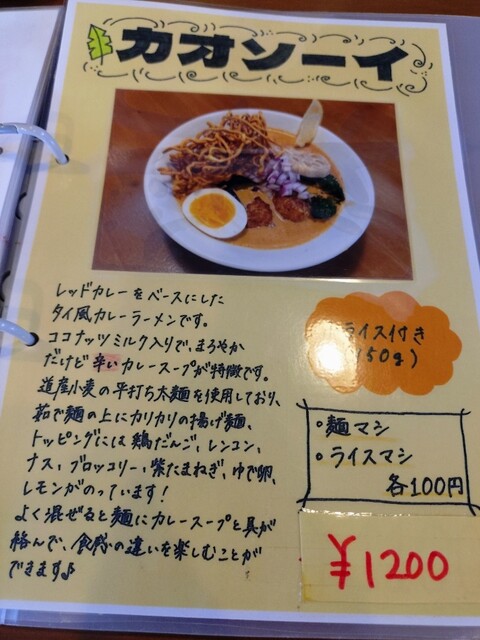 カオソーイ
レッドカレーをベースにした
タイ風カレーラーメンです。
ココナッツミルク入りで、まろやか
だけど辛いカレースープが特徴です。
道産小麦の平打ち太麺を使用しており、
茹で麺の上にカリカリの揚げ麺、
トッピングには鶏だんご、レンコン、
ナス、ブロッコリー、紫たまねぎ、ゆで卵、
レモンがのっています！
よく混ぜると麺にカレースープと具が
絡んで、食感の違いを楽しむことが
できます♪
ライス付き
(150g)
・麺マシ
・ライスマシ
各100円
¥1200